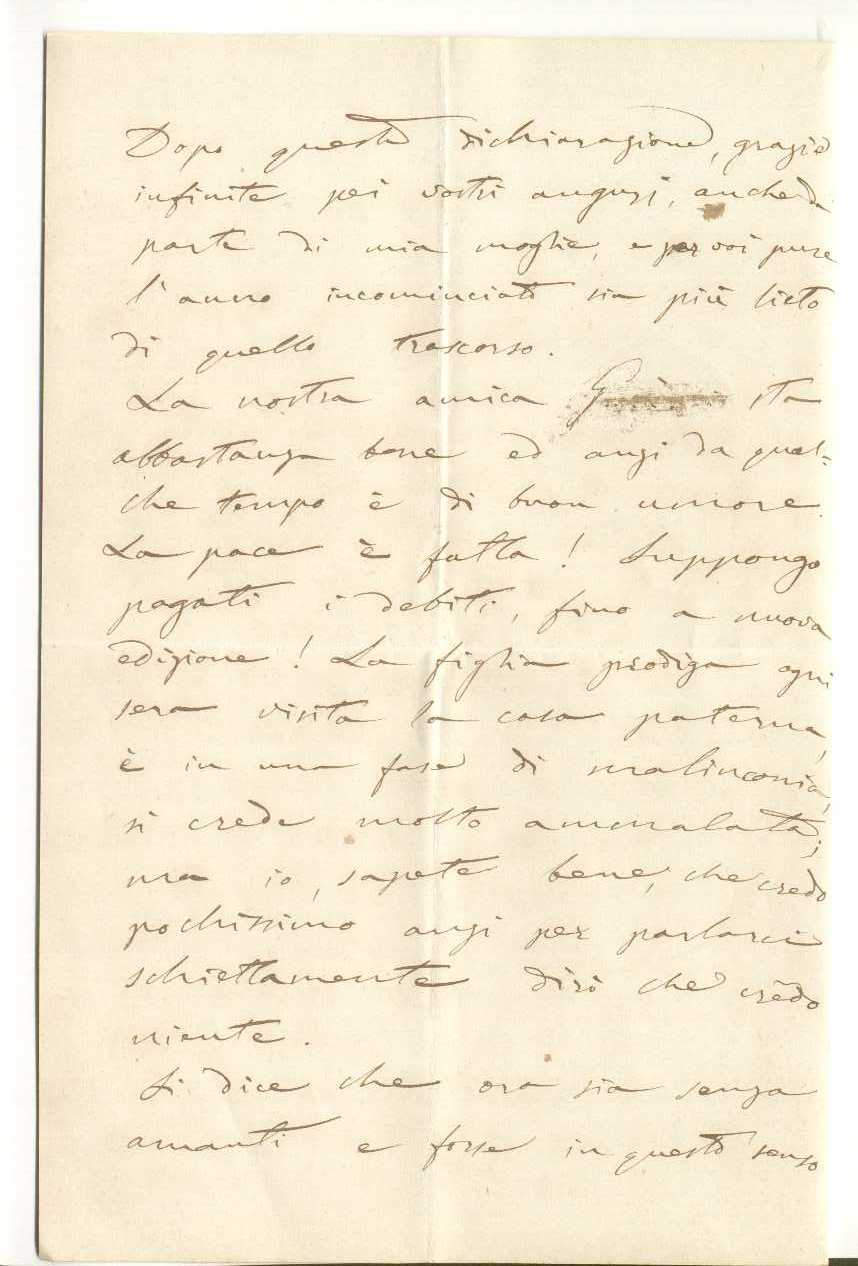 Dopo questa dichiarazione, grazie
infinite pei vostri augurj, anche da
parte di mia moglie, e per voi pure
l'anno incominciato sia più lieto
di quello trascorso.
La nostra amica sta
abbastanza bene ed anzi da qual=
che tempo è di buon umore.
La pace è fatta! Suppongo
pagati i debiti, fino a nuova
edizione! La figlia prodiga ogni
sera visita la casa paterna,
è in una fase di malinconia,
si crede molto ammalata;
ma io, sapete bene, che credo
pochissimo anzi per parlarci
schiettamente dirò che credo
niente.
Si dice che ora sia senza
amanti e forse in questo senso